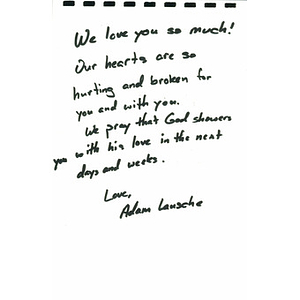 We love you so much!
Our hearts are so
hurting and broken for
you and with you.
We pray that God showers
you with his love in the next
days and weeks.
Love,
Adam Lansche